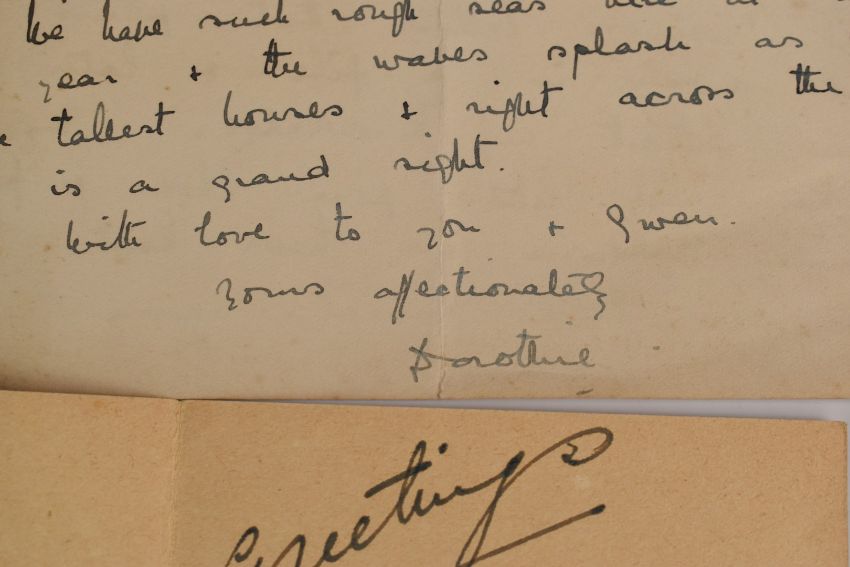 We have such rough seas here at
year + the waves splash as
tallest houses + right across the
is a grand sight.
With love to you + Gwen.
Yours affectionately
Dorothie
Greetings